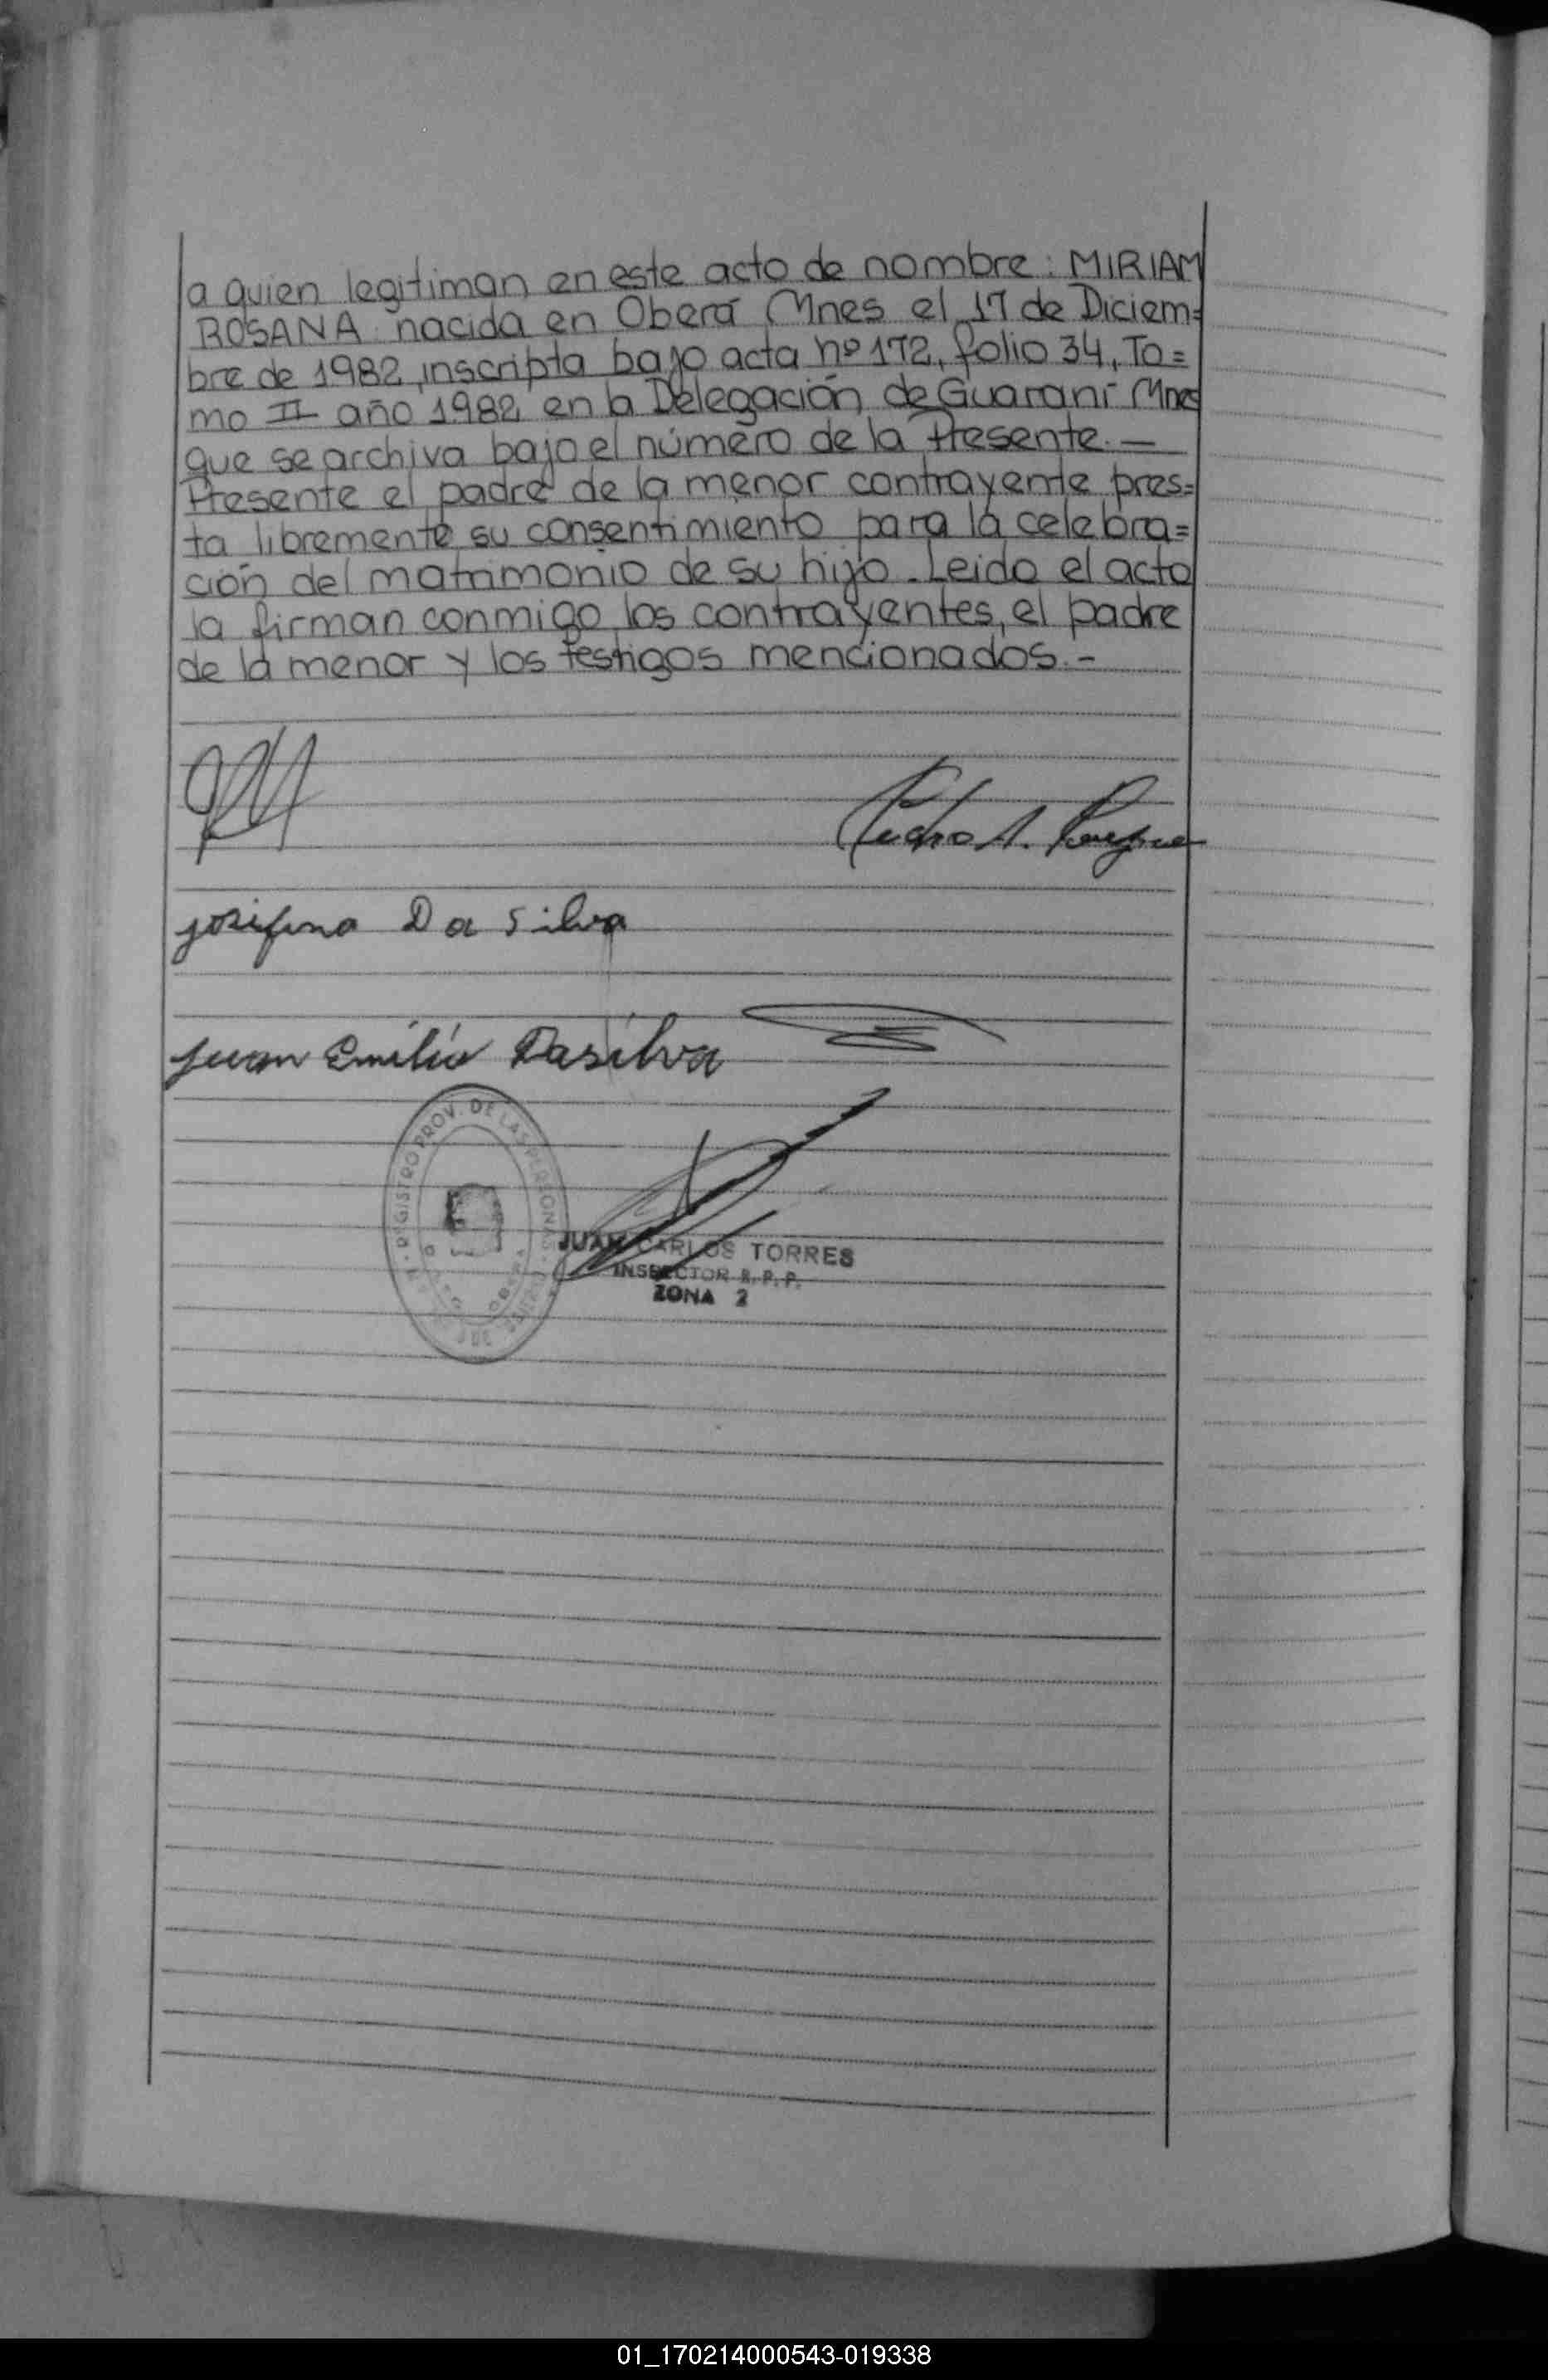 a quien legitiman en este acto de nombre: MIRIAM
ROSANA nacida en Oberá Mnes el 17 de Diciem=
bre de 1982, inscripta bajo acta nº 172, folio 34, To=
mo II año 1982 en la Delegación de Guaraní Mnes
que se archiva bajo el número de la Presente.—
Presente el padre de la menor contrayente pres=
ta libremente su consentimiento para la celebra=
ción del matrimonio de su hijo. Leido el acto
la firman conmigo los contrayentes, el padre
de la menor y los testigos mencionados.-
Pedro A.
Josifina Da Silva
Juan Emilio Dasilva
REGISTRO PROV. DE LAS PERSONAS
JUAN CARLOS TORRES
INSPECTOR R. P. P.
ZONA 2
01_170214000543-019338